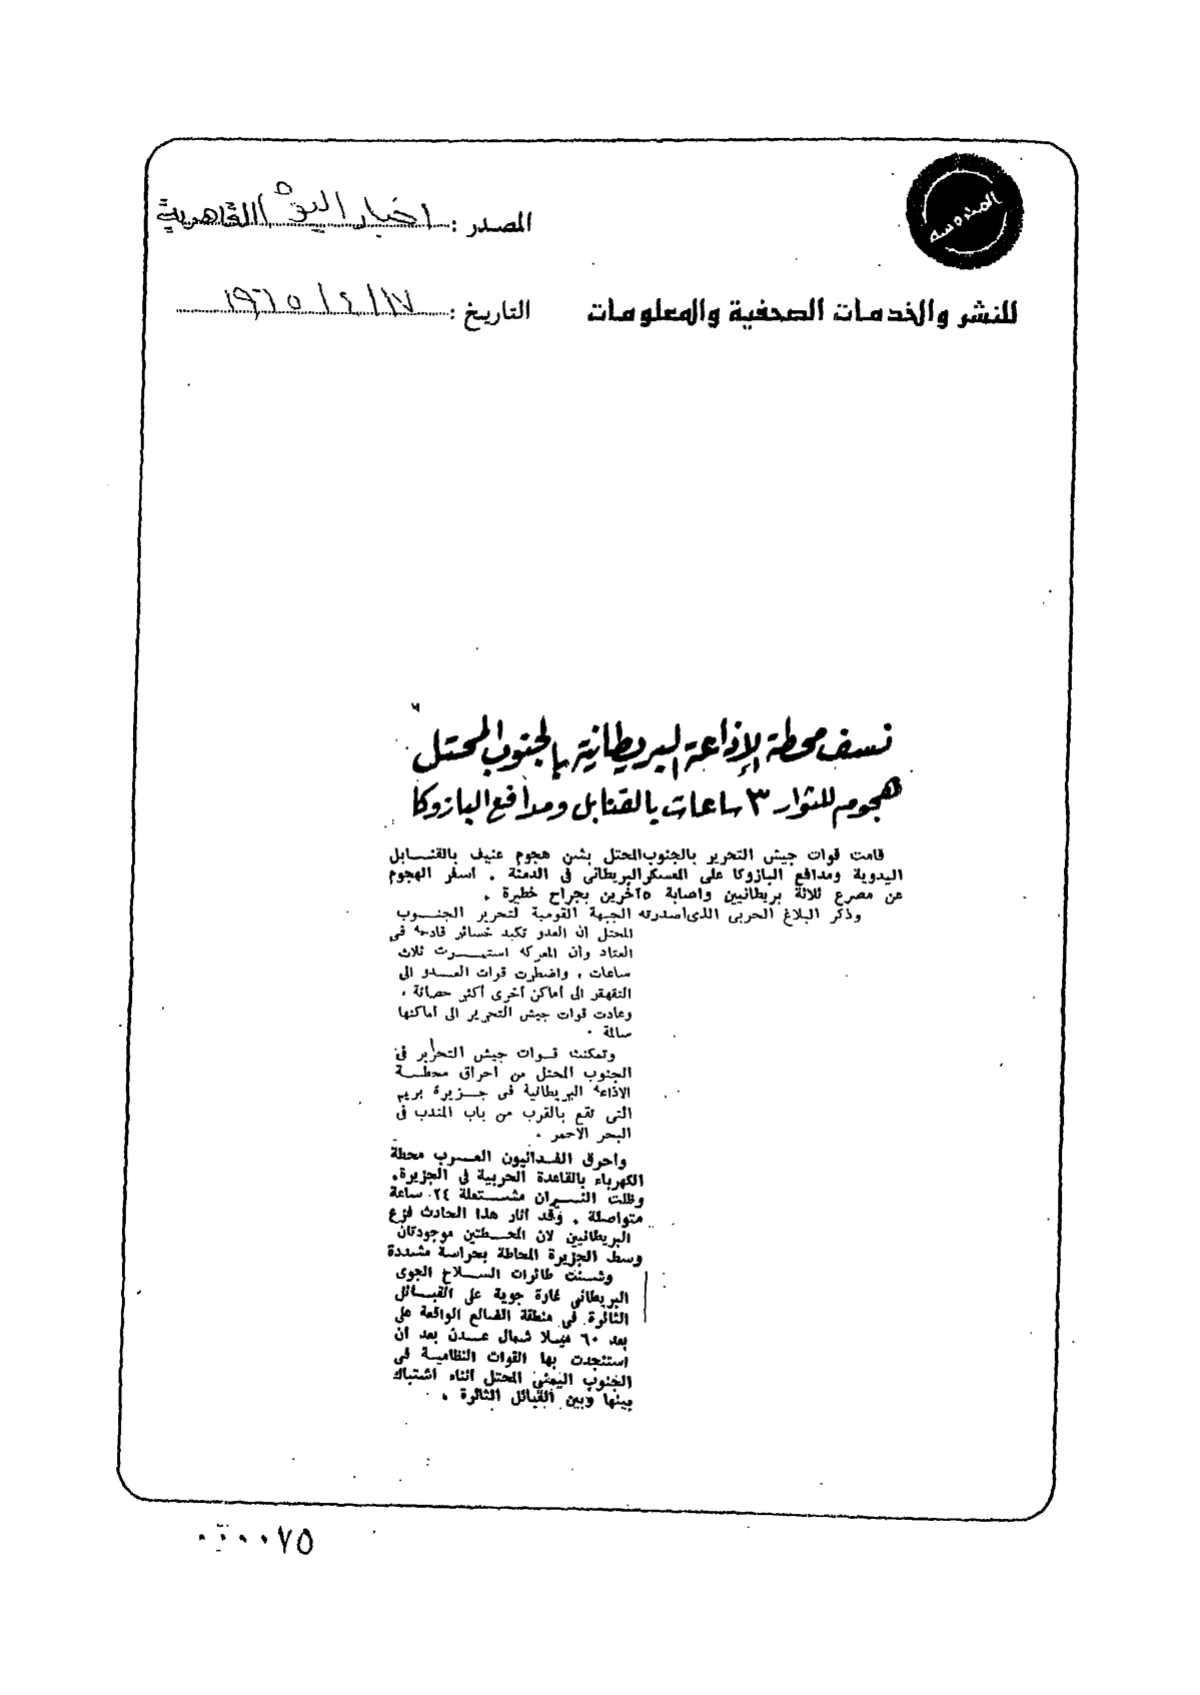 المصدر : اخبار اليوم القاهرية
للنشر والخدمات الصحفية والمعلومات
التاريخ : ١٧ / ٤ / ١٩٦٥
نسف محطة الإذاعة البريطانية بالجنوب المحتل
هجوم للثوار ٣ ساعات بالقنابل ومدافع البازوكا
قامت قوات جيش التحرير بالجنوب المحتل بشن هجوم عنيف بالقنــابل
اليدوية ومدافع البازوكا على المعسكر البريطانى فى الدمنة . اسفر الهجوم
عن مصرع ثلاثة بريطانيين واصابة ٥ آخرين بجراح خطيرة .
وذكر البلاغ الحربى الذى اصدرته الجبهة القومية لتحرير الجنــوب
المحتل ان العدو تكبد خسائر فادحة فى
العتاد وأن المعركة استمــرت ثلاث
ساعات ، واضطرت قوات العــدو الى
التقهقر الى أماكن أخرى أكثر حصانة ،
وعادت قوات جيش التحرير الى أماكنها
سالمة .
وتمكنت قــوات جيش التحرير فى
الجنوب المحتل من احراق محطــة
الاذاعة البريطانية فى جــزيرة بريم
التى تقع بالقرب من باب المندب فى
البحر الاحمر .
واحرق الفــدائيون العــرب محطة
الكهرباء بالقاعدة الحربية فى الجزيرة .
وظلت النــيران مشــتعلة ٢٤ ساعة
متواصلة . وقد أثار هذا الحادث فزع
البريطانيين لان المحــطتين موجودتان
وسط الجزيرة المحاطة بحراسة مشددة
وشــنت طائرات الســلاح الجوى
البريطانى غارة جوية على القبــائل
الثائرة فى منطقة الضالع الواقعة على
بعد ٦٠ ميــلا شمال عــدن بعد ان
استنجدت بها القوات النظاميــة فى
الجنوب اليمنى المحتل أثناء اشتباك
بينها وبين القبائل الثائرة .